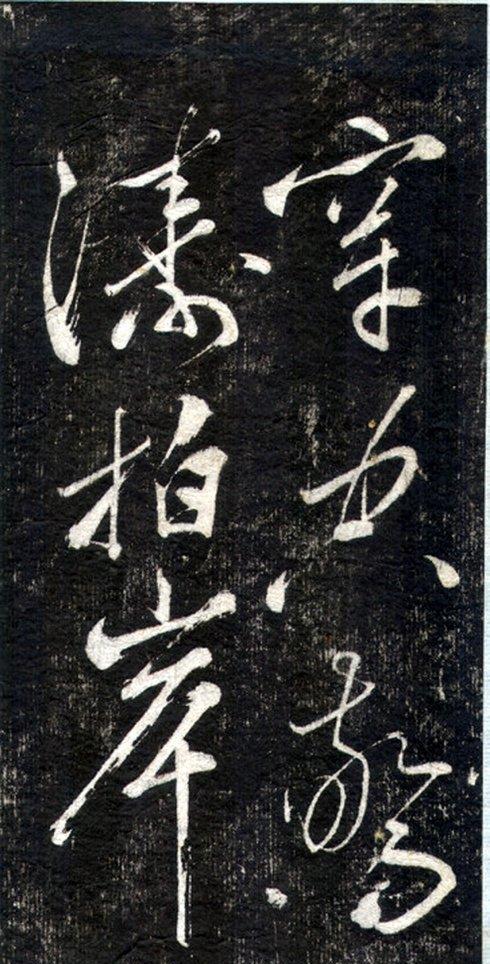 穿空驚
濤拍岸